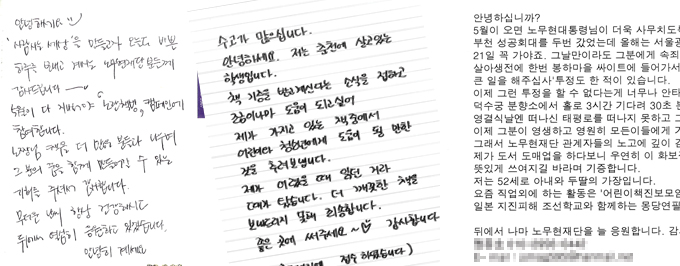 안녕하세요
'사람사는 세상'을 만들고자 오늘도 바쁜
하루를 보내고 계시는 노무현재단 분들께
감사드립니다
5월이 다 지나기
합니다.
노짱님 책을 더 많은 분들과 나누며
그분의 꿈을 함께 만들어갈 수 있는
기회를 주셔서 감사합니다.
모두들 날씨 항상 건강하시고
뒤에서 열심히 응원하고 있겠습니다.
안녕히 계세요
수고가 많으십니다.
안녕하세요. 저는 춘천에 살고있는
학생입니다.
책 기증을 받으신다는 소식을 접하고
조금이나마 도움이 되고싶어
제가 가지고 있는 책중에서
어린이와 청소년에게 도움이 될 만한
것을 추려보냅니다.
제가 어렸을 때 읽던 거라
때가 탔습니다. 더 깨끗한 책을
보내드리지 못해 죄송합니다.
좋은 곳에 써주세요~♡ 감사합니다
접수 하였습니다)
안녕하십니까?
5월이 오면 노무현대통령님이 더욱 사무치도
부천 성공회대를 두번 갔었는데 올해는 서울광
21일 꼭 가야죠. 그날만이라도 그분에게 속죄
살아생전에 한번 봉하마을 싸이트에 들어가서
큰 일을 해주십사'투정도 한 적이 있습니다.
이제 그런 투정을 할 수 없다는게 너무나 안타
덕수궁 분향소에서 홀로 3시간 기다려 30초
영결식날엔 떠나신 태평로를 떠나지 못하고
이제 그분이 영생하고 영원히 모든이들에게 기
그래서 노무현재단 관계자들의 노고에 깊이 감
제가 도서 도매업을 하다보니 우연히 이 화보
뜻있게 쓰여지길 바라며 기증합니다.
저는 52세로 아내와 두딸의 가장입니다.
요즘 직업외에 하는 활동은 '어린이책진보모임
일본 지진피해 조선학교와 함께하는 몽당연필
뒤에서 나마 노무현재단을 늘 응원합니다. 감